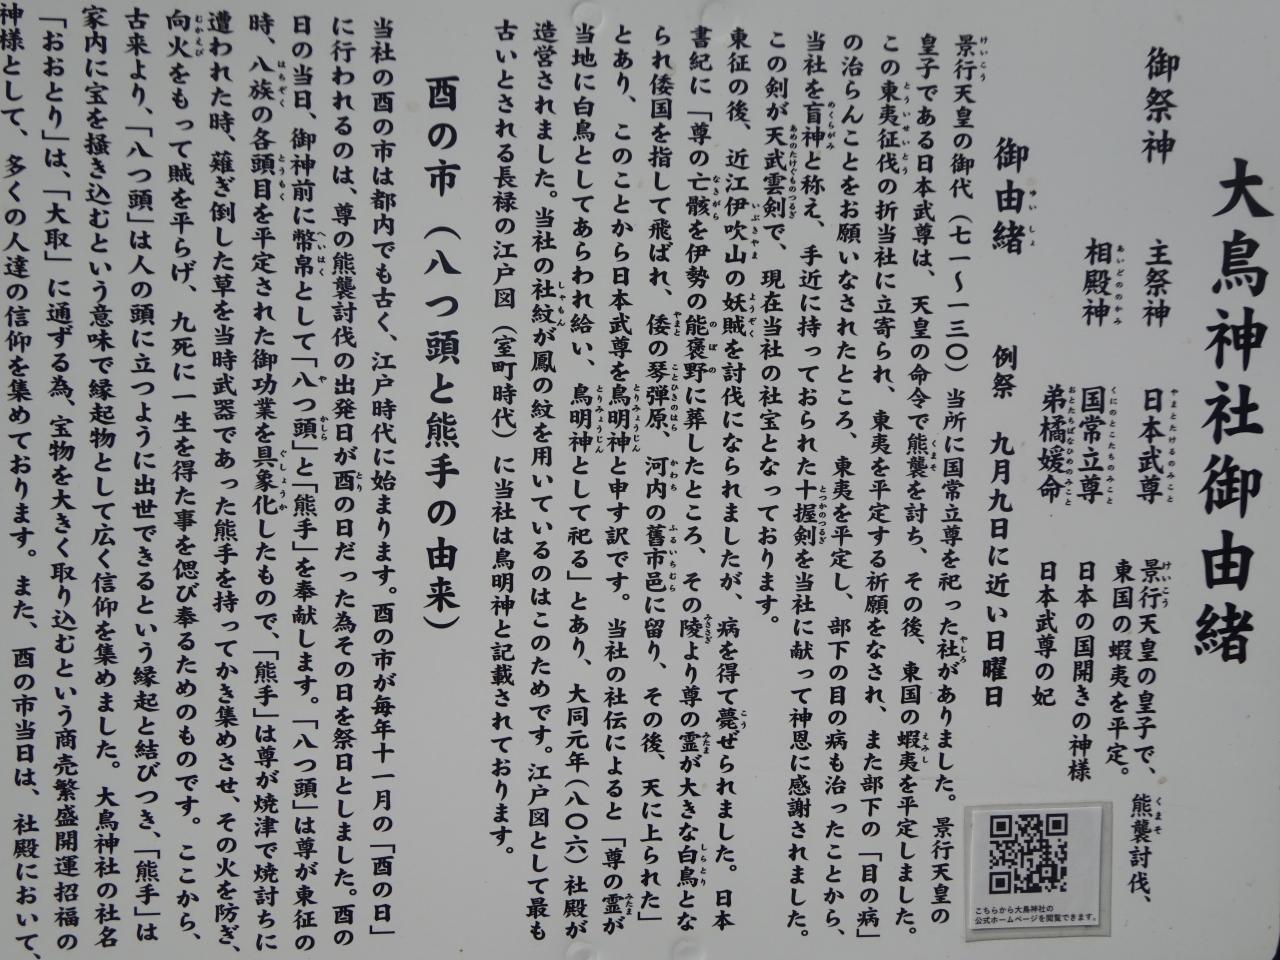 大鳥神社御由緒
御祭神
主祭神 日本武尊 景行天皇の皇子で、熊襲討伐、
東国の蝦夷を平定。
相殿神 国常立尊 日本の国開きの神様
弟橘媛命 日本武尊の妃
御由緒 例祭 九月九日に近い日曜日
景行天皇の御代(七一〜一三〇)当所に国常立尊を祀った社がありました。景行天皇の
皇子である日本武尊は、天皇の命令で熊襲を討ち、その後、東国の蝦夷を平定しました。
この東夷征伐の折当社に立寄られ、東夷を平定する祈願をなされ、また部下の「目の病」
の治らんことをお願いなされたところ、東夷を平定し、部下の目の病も治ったことから、
当社を盲神と称え、手近に持っておられた十握剣を当社に献って神恩に感謝されました。
この剣が天武雲剣で、現在当社の社宝となっております。
東征の後、近江伊吹山の妖賊を討伐になられましたが、病を得て薨ぜられました。日本
書紀に「尊の亡骸を伊勢の能褒野に葬したところ、その陵より尊の霊が大きな白鳥とな
られ倭国を指して飛ばれ、倭の琴弾原、河内の舊市邑に留り、その後、天に上られた」
とあり、このことから日本武尊を鳥明神と申す訳です。当社の社伝によると「尊の霊が
当地に白鳥としてあらわれ給い、鳥明神として祀る」とあり、大同元年(八〇六)社殿が
造営されました。当社の社紋が鳳の紋を用いているのはこのためです。江戸図として最も
古いとされる長禄の江戸図(室町時代)に当社は鳥明神と記載されております。
酉の市(八つ頭と熊手の由来)
当社の酉の市は都内でも古く、江戸時代に始まります。酉の市が毎年十一月の「酉の日」
に行われるのは、尊の熊襲討伐の出発日が酉の日だった為その日を祭日としました。酉の
日の当日、御神前に幣帛として「八つ頭」と「熊手」を奉献します。「八つ頭」は尊が東征の
時、八族の各頭目を平定された御功業を具象化したもので、「熊手」は尊が焼津で焼討ちに
遭われた時、薙ぎ倒した草を当時武器であった熊手を持ってかき集めさせ、その火を防ぎ、
向火をもって賊を平らげ、九死に一生を得た事を偲び奉るためのものです。ここから、
古来より、「八つ頭」は人の頭に立つように出世できるという縁起と結びつき、「熊手」は
家内に宝を掻き込むという意味で縁起物として広く信仰を集めました。大鳥神社の社名
「おおとり」は、「大取」に通ずる為、宝物を大きく取り込むという商売繁盛開運招福の
神様として、多くの人達の信仰を集めております。また、酉の市当日は、社殿において、
こちらから大鳥神社の
公式ホームページを閲覧できます。